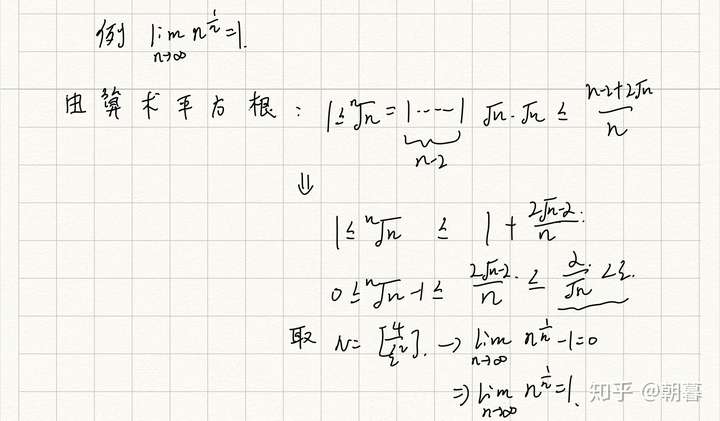 例 lim n→∞ n^(1/n) = 1.
由算术平方根: 1 ≤ ⁿ√n = 1·····1 √n·√n ≤ (n-2+2√n)/n
n-2
⇓
1 ≤ ⁿ√n ≤ 1 + (2√n-2)/n.
0 ≤ ⁿ√n - 1 ≤ (2√n-2)/n. ≤ 2/√n < ε.
取 N = [4/ε²]. → lim n→∞ n^(1/n) - 1 = 0
⇒ lim n→∞ n^(1/n) = 1.
知乎 @朝暮